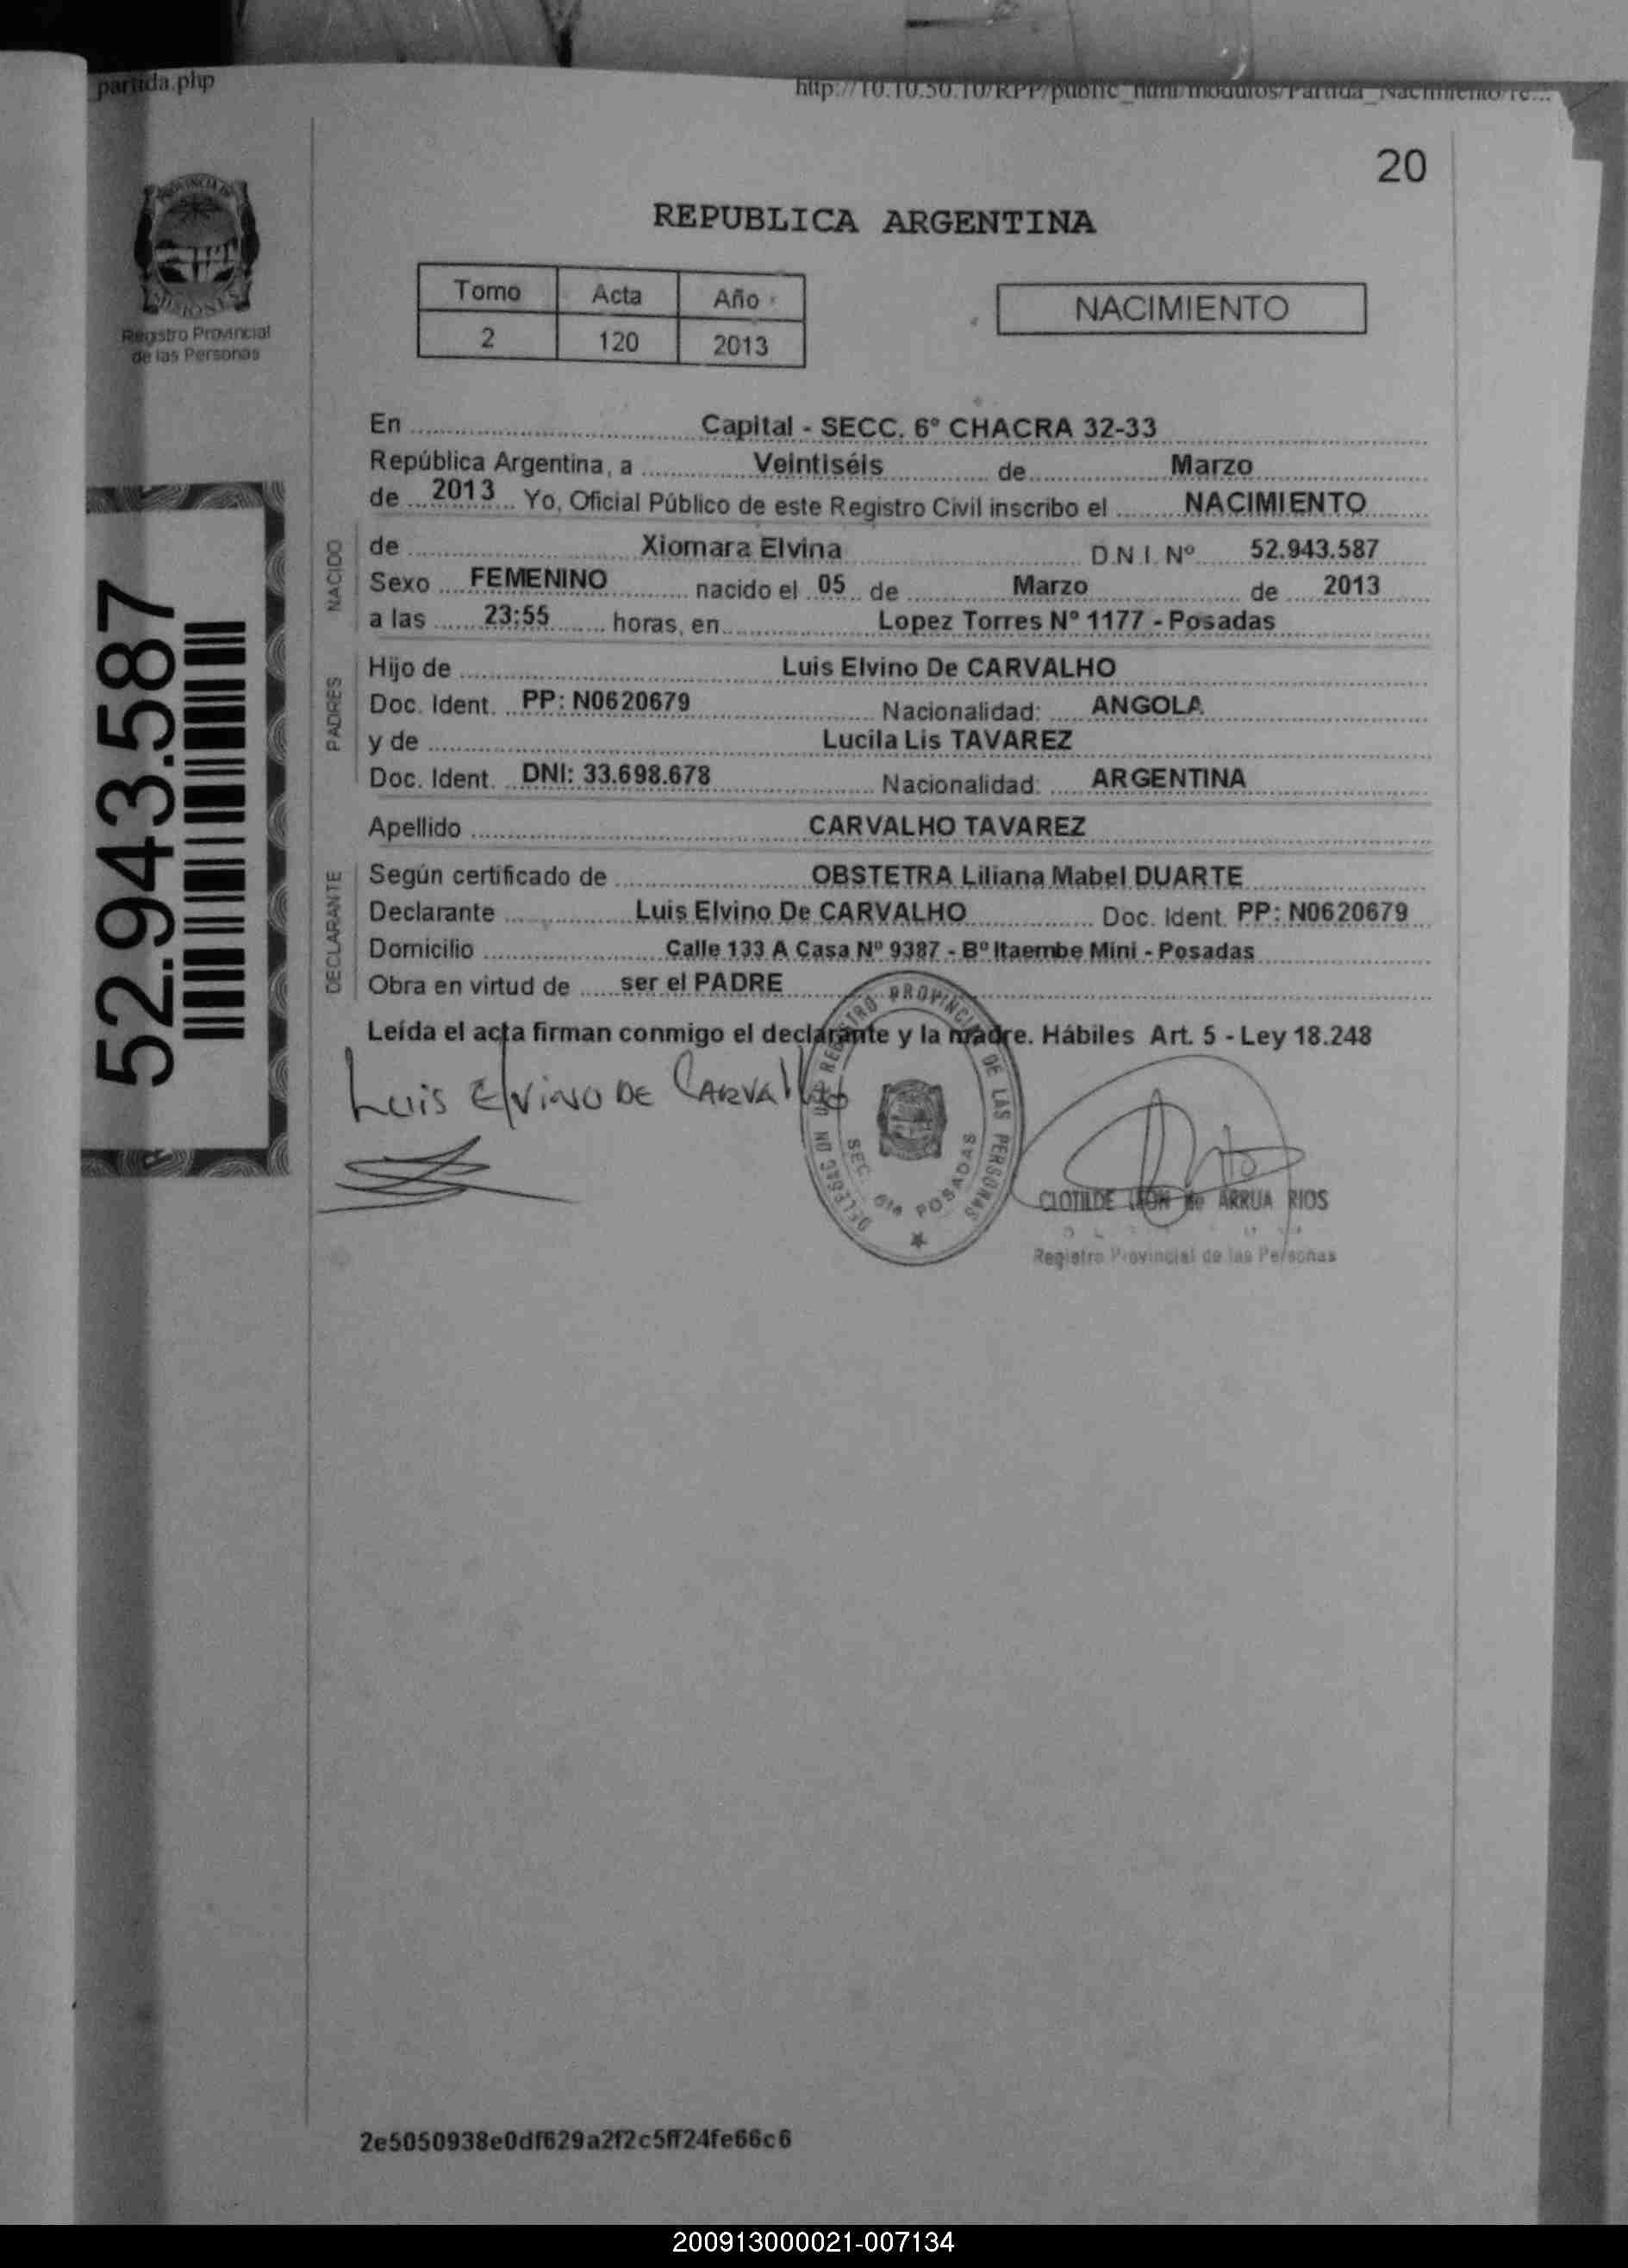 partida.php
http://10.10.50.10/RPP/public_html/modulos/Partida_Nacimiento/re...
20
PROVINCIA DE
MISIONES
Registro Provincial
de las Personas
REPUBLICA ARGENTINA
Tomo Acta Año
2 120 2013
NACIMIENTO
52.943.587
En Capital - SECC. 6º CHACRA 32-33
República Argentina, a Veintiséis de Marzo
de 2013 Yo, Oficial Público de este Registro Civil inscribo el NACIMIENTO
NACIDO
de Xiomara Elvina D.N.I. Nº 52.943.587
Sexo FEMENINO nacido el 05 de Marzo de 2013
a las 23:55 horas, en Lopez Torres Nº 1177 - Posadas
PADRES
Hijo de Luis Elvino De CARVALHO
Doc. Ident. PP: N0620679 Nacionalidad: ANGOLA
y de Lucila Lis TAVAREZ
Doc. Ident. DNI: 33.698.678 Nacionalidad: ARGENTINA
Apellido CARVALHO TAVAREZ
DECLARANTE
Según certificado de OBSTETRA Liliana Mabel DUARTE
Declarante Luis Elvino De CARVALHO Doc. Ident. PP: N0620679
Domicilio Calle 133 A Casa Nº 9387 - Bº Itaembe Mini - Posadas
Obra en virtud de ser el PADRE
Leída el acta firman conmigo el declarante y la madre. Hábiles Art. 5 - Ley 18.248
Luis Elvino DE CARVALHO
REGISTRO PROVINCIAL DE LAS PERSONAS
SEC. 6ta POSADAS
CLOTILDE LEON de ARRUA RIOS
Registro Provincial de las Personas
2e5050938e0df629a2f2c5ff24fe66c6
200913000021-007134